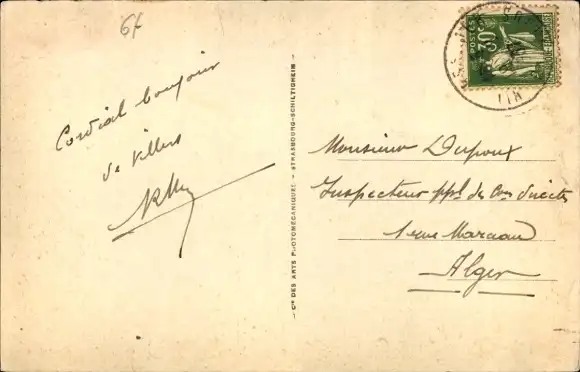 6f
Cordial bonjour
de Villers
Cie DES ARTS PHOTOMÉCANIQUES - STRASBOURG-SCHILTIGHEIM
POSTES
30c
Monsieur Dupoux
Inspecteur ppl des Cons directes
1 rue Marceau
Alger